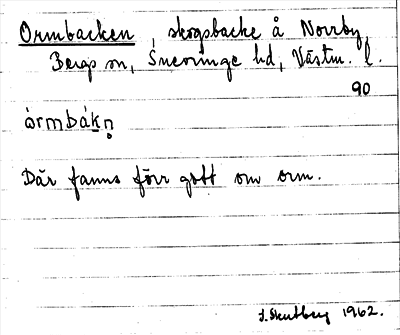 Ormbacken, skogsbacke å Norrby,
Bergs sn, Snevringe hd, Västm. l.
90
òrmbákn̥
Där fanns förr gott om orm.
1962.